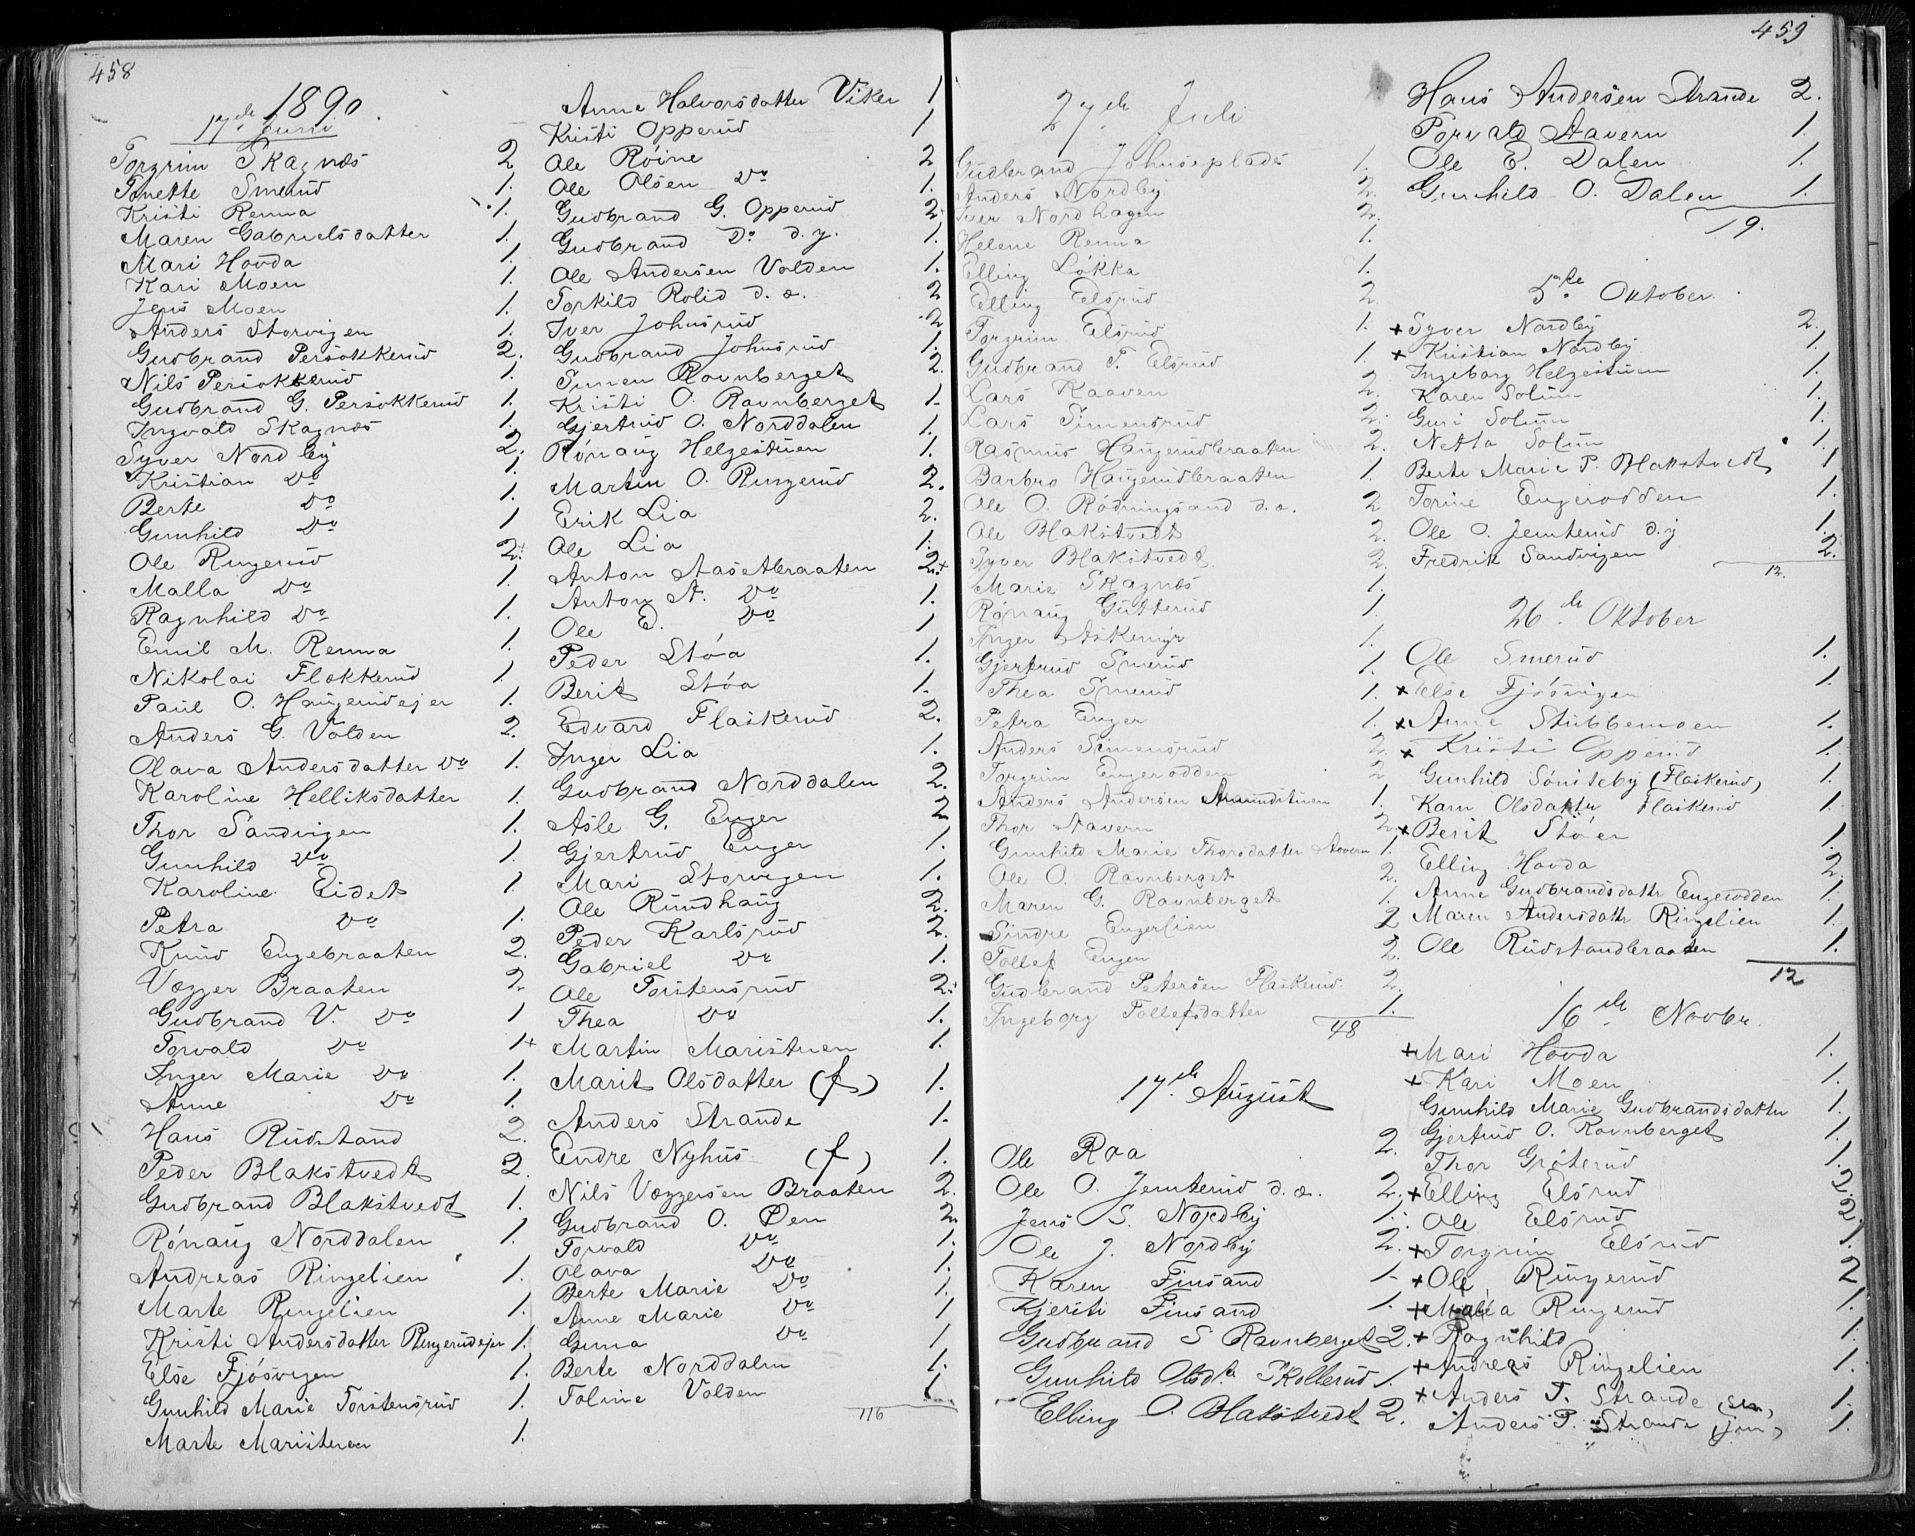 458
1890
17de Juni
Torgrim Skagnæs 2
Tonette Smerud 1.
Kristi Renna 1.
Maren Gabrielsdatter 1.
Mari Hovda 1.
Kari Moen 1.
Jens Moen 1.
Anders Storvigen 1.
Gudbrand Persokkerud 2.
Nils Persokkerud 1.
Gudbrand G. Persokkerud 1.
Ingvald Skagnæs 1.
Syver Nordby 2.
Kristian Do 1.
Berte Do 1.
Gunhild Do 1
Ole Ringerud 2.
Malla Do 1.
Ragnhild Do 1.
Emil M. Renna 1.
Nikolai Flokkerud 1.
Paul O. Haugerudejer 1.
Anders G. Volden 2.
Olava Andersdatter Do 1.
Karoline Helliksdatter 1.
Thor Sandvigen 1.
Gunhild Do 1.
Karoline Eidet 1.
Petra Do 1.
Knud Engebraaten 2.
Vegger Braaten 2.
Gudbrand V. Do 1
Torvald Do 1+
Inger Marie Do 1.
Anne Do 1.
Hans Rudstand 2.
Peder Blakstvedt 2.
Gudbrand Blakstvedt 1.
Rønaug Norddalen 1.
Andreas Ringelien 1.
Marte Ringelien 1.
Kristi Andersdatter Ringerudejer 1.
Else Fjøsvigen 1.
Gunhild Marie Torstensrud 1.
Marte Maristuen 1.
Anne Halvorsdatter Viker 1
Kristi Opperud 1
Ole Røine 2
Ole Olsen Do 1.
Gudbrand G. Opperud 2.
Gudbrand Do d.y. 1.
Ole Andersen Volden 1.
Torkild Rolid d.e. 2
Iver Johnsrud 2
Gudbrand Johnsrud 1.
Simen Ravnberget 2.
Kristi O. Ravnberget 1.
Gjertrud O. Norddalen 1.
Rønaug Helgestuen 1.
Martin O. Ringerud 2.
Erik Lia 2.
Ole Lia 1.
Anton Aasetbraaten 2.+
Anton A. Do 1.
Ole E. Do 1
Peder Støa 1.
Berit Støa 1.
Edvard Flaskerud 2.
Inger Lia 1.
Gudbrand Norddalen 2.
Asle G. Enger 2
Gjertrud Enger 1.
Mari Storvigen 1.
Ole Rundhaug 2.
Peder Karlsrud 2.
Gabriel Do 1.
Ole Torstensrud 2.
Thea Do 1.
Martin Maristuen 1.
Marit Olsdatter (f) 1.
Anders Strande 1.
Endre Nyhus (f) 1.
Nils Væggersen Braaten 2.
Gudbrand O. Øen 2.
Torvald Do 1.
Olava Do 1.
Berte Marie Do 1.
Anne Marie Do 1
Guma Do 1
Berte Norddalen 1.
Toline Volden 1.
116
459
27de Juli
Gudbrand Johnseplads 1.
Anders Nordby 2.
Iver Nordhagen 2.
Helene Renna 1.
Elling Løkka 1.
Elling Elsrud 2.
Torgrim Elsrud 1.
Gudbrand T. Elsrud 1.
Lars Raaven 2.
Lars Simensrud 2.
Rasmus Haugerudbraaten 2.
Barbro Haugerudbraaten 1.
Ole O. Rødningsand d.e. 2
Ole Blakstvedt 2.
Syver Blakstvedt 2.
Marie Skagnæs 1.
Rønaug Gutterud 1
Inger Askemyr 1.
Gjertrud Smerud 1.
Thea Smerud 1.
Petra Enger 1.
Anders Simensrud 2.
Torgrim Engerodden 2
Anders Andersen Aamundstuen 1.
Thor Aavern 2.
Gunhild Marie Thorsdatter Aavern 1.
Ole O. Ravnberget 2.
Maren G. Ravnberget 1.
Sindre Engerlien 2
Tollef Engen 2.
Gudbrand Petersen Flaskerud 2.
Ingeborg Tollefsdatter 1.
48
17de August
Ole Raa 2.
Ole O. Jemterud d.e. 2.
Jens S. Nordby 1.
Ole J. Nordby 2.
Karen Finsand 1.
Kjersti Finsand 1.
Gudbrand S Ravnberget 2.
Gunhild Olsd.a Skollerud 1.
Elling O. Blakstvedt 2.
Hans Andersen Strande 2.
Torvald Aavern 1.
Ole E. Dalen 1.
Gunhild O. Dalen 1.
19.
5te Oktober
+ Syver Nordby 2.
+ Kristian Nordby 1.
Ingeborg Helgestuen 1.
Karen Solum 1.
Guri Solum 1.
Netta Solum 1.
Berte Marie P. Blakstvedt 1
Torine Engerodden 1.
Ole O. Jemterud d.y 1.
Fredrik Sandvigen 2.
12.
26de Oktober
Ole Smerud 1.
+ Else Fjøsvigen 1.
+ Anne Stubbemoen 1.
+ Kristi Opperud 1.
Gunhild Sønsteby (Flaskerud) 1.
Karn Olsdatter Flaskerud 1.
+ Berit Støen 1.
Elling Hovda 2.
Anne Gudbrandsdattr Engerodden 1.
Maren Andersdattr Ringelien 1.
Ole Rudstandbraaten 1.
12
16de Novbr.
+ Mari Hovda 1.
+ Kari Moen 1.
Gunhild Marie Gudbrandsdatter 1.
Gjertrud O. Ravnberget 1.
Thor Grøterud 1.
+ Elling Elsrud 2.
Ole Elsrud 2.
+ Torgrim Elsrud 1.
+ Ole Ringerud 2.
+ Malla Ringerud 1.
+ Ragnhild 1.
+ Andreas Ringelien 1.
+ Anders T. Strande (sen) 1.
Anders P. Strande (jun) 1.